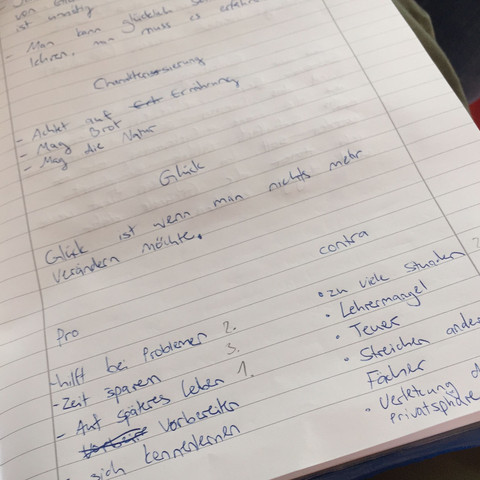 von
ist unnötig
- Man kann glücklich sein
lehren, man muss es erfahren
Charakterisierung
- Achtet auf Ernährung
- Mag Brot
- Mag die Natur
Glück
Glück ist wenn man nichts mehr
verändern möchte.
Pro
- hilft bei Problemen 2.
- Zeit sparen 3.
- Auf späteres Leben 1.
Vorbereiten
sich kennenlernen
contra
• zu viele Stunden 2
• Lehrermangel
• Teuer
• Streichen ander
Fächer
• Verletung d
Privatsphäre